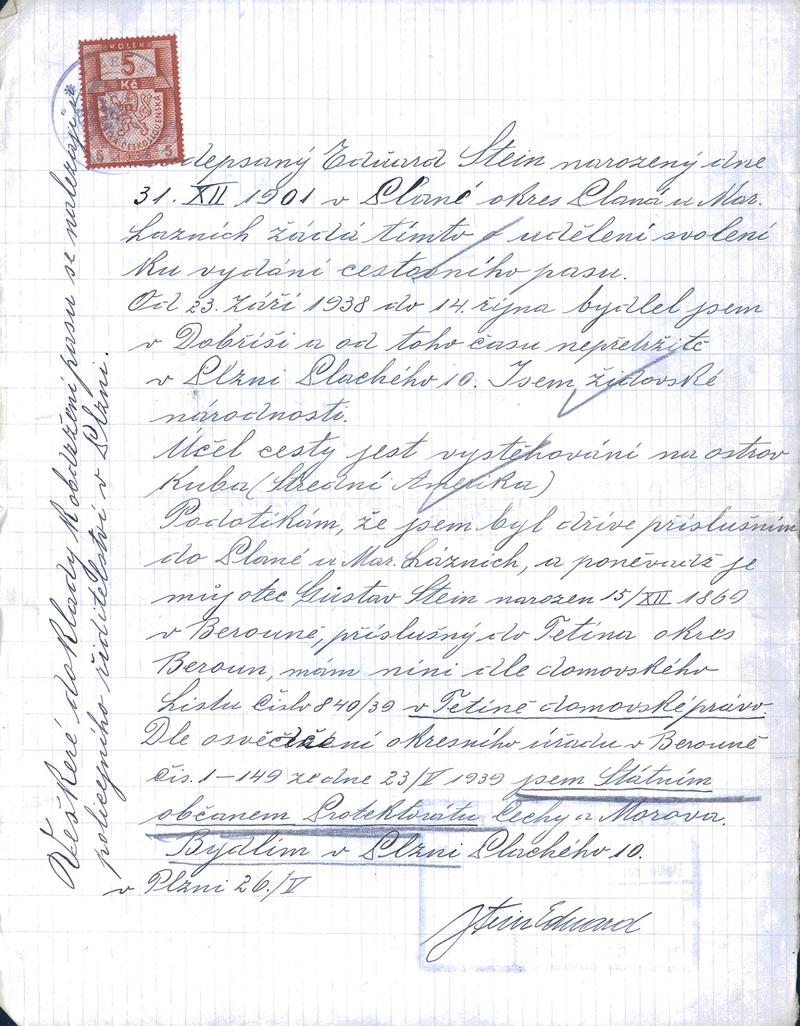 KOLEK
5
Kč
ČESKOSLOVENSKÁ
5
depsaný Eduard Stein narozený dne
31. XII 1901 v Plané okres Planá u Mar.
Lazních žádá tímto o udělení svolení
ku vydání cestovního pasu.
Od 23. září 1938 do 14. října bydlel jsem
v Dobříši a od toho času nepřetržitě
v Plzni Plachého 10. Jsem židovské
národnosti.
Účel cesty jest vystěhování na ostrov
Kuba (Střední Amerika)
Podotikám, že jsem byl dříve příslušným
do Plané u Mar. Lázních, a poněvadž je
můj otec Gustav Stein narozen 15/XII 1869
v Berouně, příslušný do Tetína okres
Beroun, mám nini dle domovského
Listu číslo 840/39 v Tetíně domovské právo.
Dle osvědčení okresního úřadu v Berouně
čís. 1-149 ze dne 23/V 1939 jsem Státním
občanem Protektorátu Čechy a Morava.
Bydlím v Plzni Plachého 10.
v Plzni 26./V
Stein Eduard
Veškeré doklady k obdržení pasu se nalezají u
policejního ředitelství v Plzni.